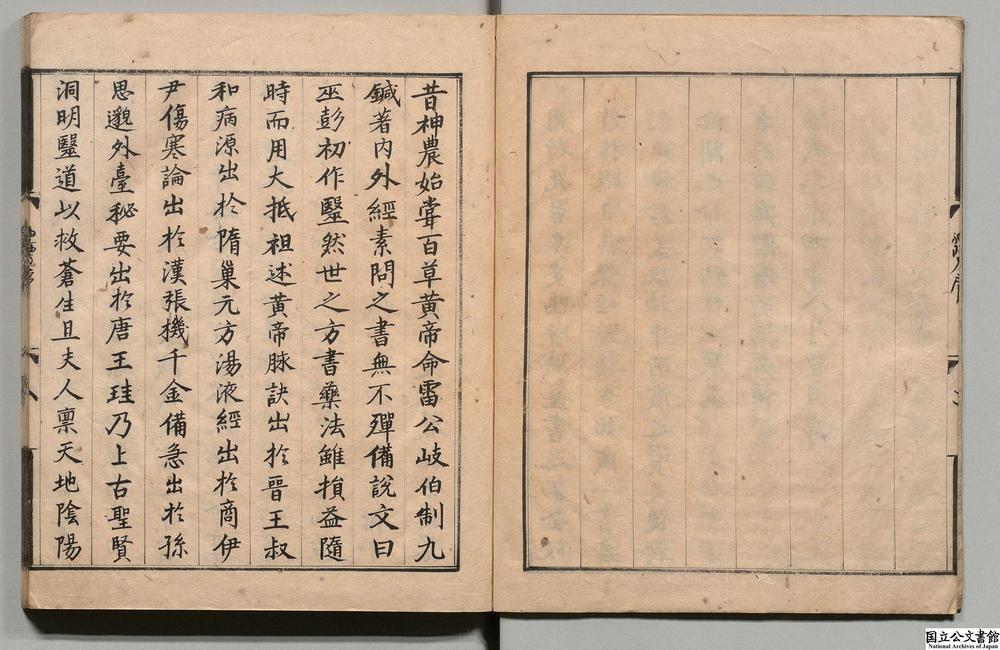 昔神農始甞百草黃帝命雷公岐伯制九
鍼著內外經素問之書無不殫備說文曰
巫彭初作毉然世之方書藥法雖損益隨
時而用大抵祖述黃帝脉訣出於晉王叔
和病源出於隋巢元方湯液經出於商伊
尹傷寒論出於漢張機千金備急出於孫
思邈外臺秘要出於唐王珪乃上古聖賢
洞明毉道以救蒼生且夫人禀天地陰陽
国立公文書館
National Archives of Japan